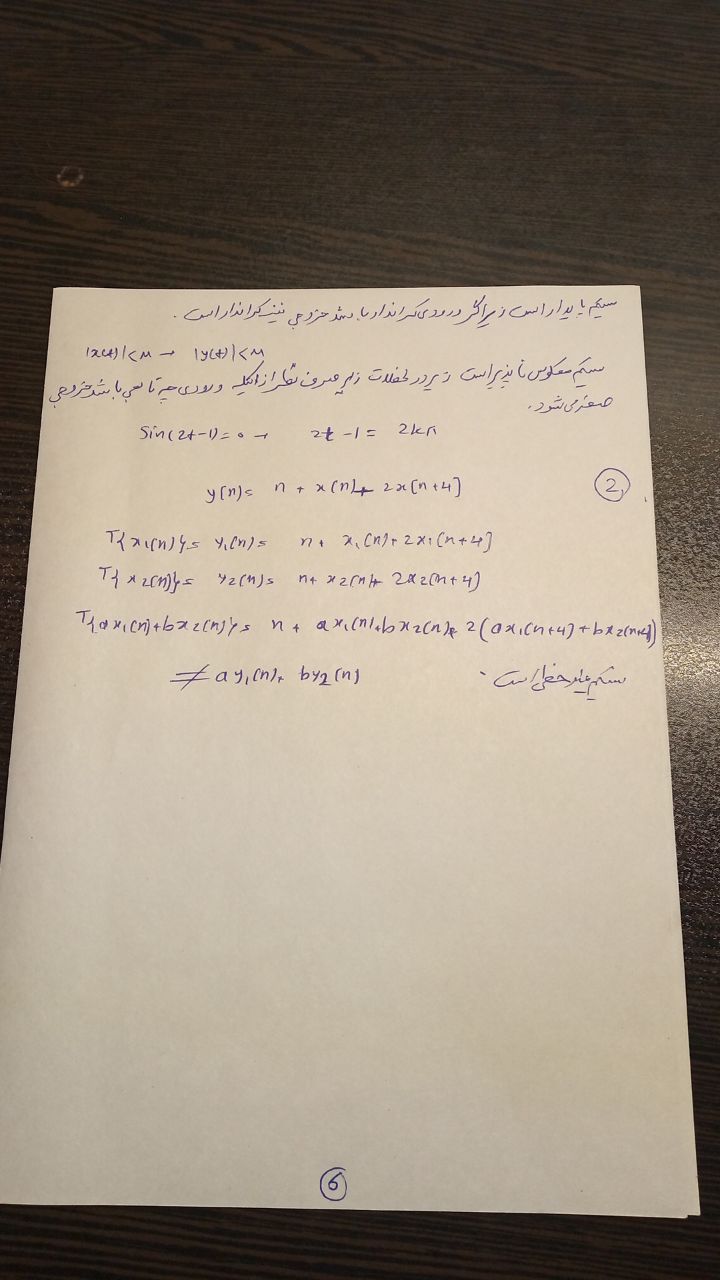 سیستم پایدار است زیرا اگر ورودی کراندار باشد خروجی نیز کراندار است.
|x(t)| < M → |y(t)| < M
سیستم معکوس ناپذیر است زیرا در لحظات زیر صرف نظر از اینکه ورودی چه تابعی باشد خروجی
صفر می شود.
Sin(2t-1) = 0 → 2t - 1 = 2kπ
y[n] = n + x[n] + 2x[n+4] ②
T{x₁[n]} = y₁[n] = n + x₁[n] + 2x₁[n+4]
T{x₂[n]} = y₂[n] = n + x₂[n] + 2x₂[n+4]
T{ax₁[n] + bx₂[n]} = n + ax₁[n] + bx₂[n] + 2(ax₁[n+4] + bx₂[n+4])
≠ ay₁[n] + by₂[n] سیستم غیر خطی است.
⑥